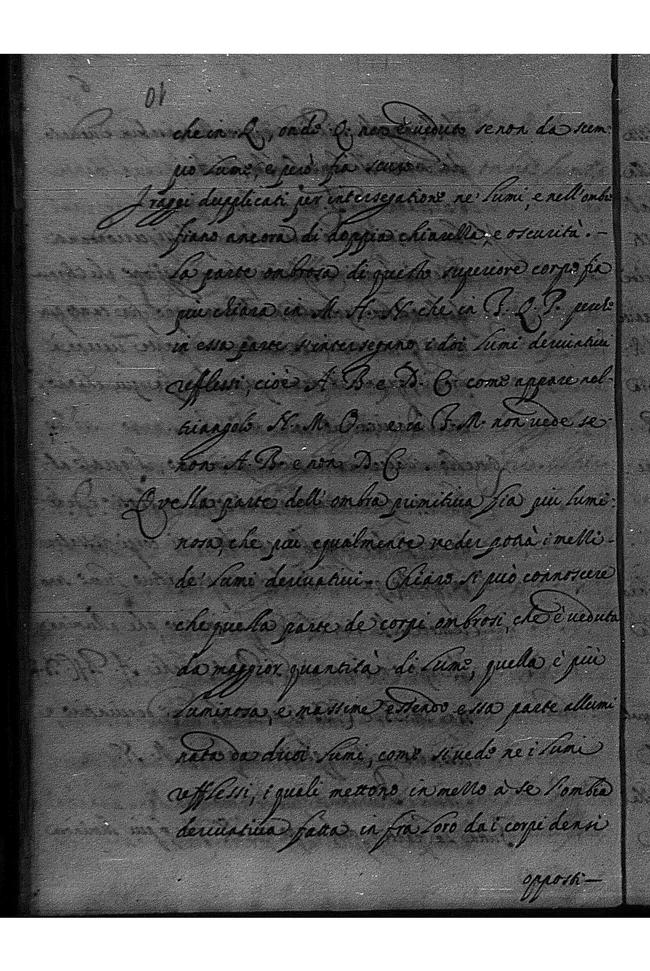 10
che in Q, onde Q. non è veduto se non da scem-
pio lume, e però fia scuro
I raggi dupplicati per intersegatione ne' lumi, e nell'ombre
fiano ancora di doppia chiarella, e oscurità. –
La parte ombrosa di questo superiore corpo fia
più chiara in M. H. N. che in P. Q. P. perche
in essa parte s'intersegano i doi lumi derivativi
refflessi, cioè A. B e D. C. come appare nel
triangolo N. M. O. e in P. M. non vede se
non A. B. e non D. C.
Quella parte dell'ombra primitiva fia più lumi-
nosa, che più egualmente veder potrà i melli
de' lumi derivativi. Chiaro si può connoscere
che quella parte de corpi ombrosi, che è veduta
da maggior quantità di lume, quella è più
luminosa, e massime essendo essa parte allumi
nata da duoi lumi, come si vede ne i lumi
refflessi, i quali mettono in mello à se l'ombra
derivativa fatta in frà loro da i corpi densi
opposti –